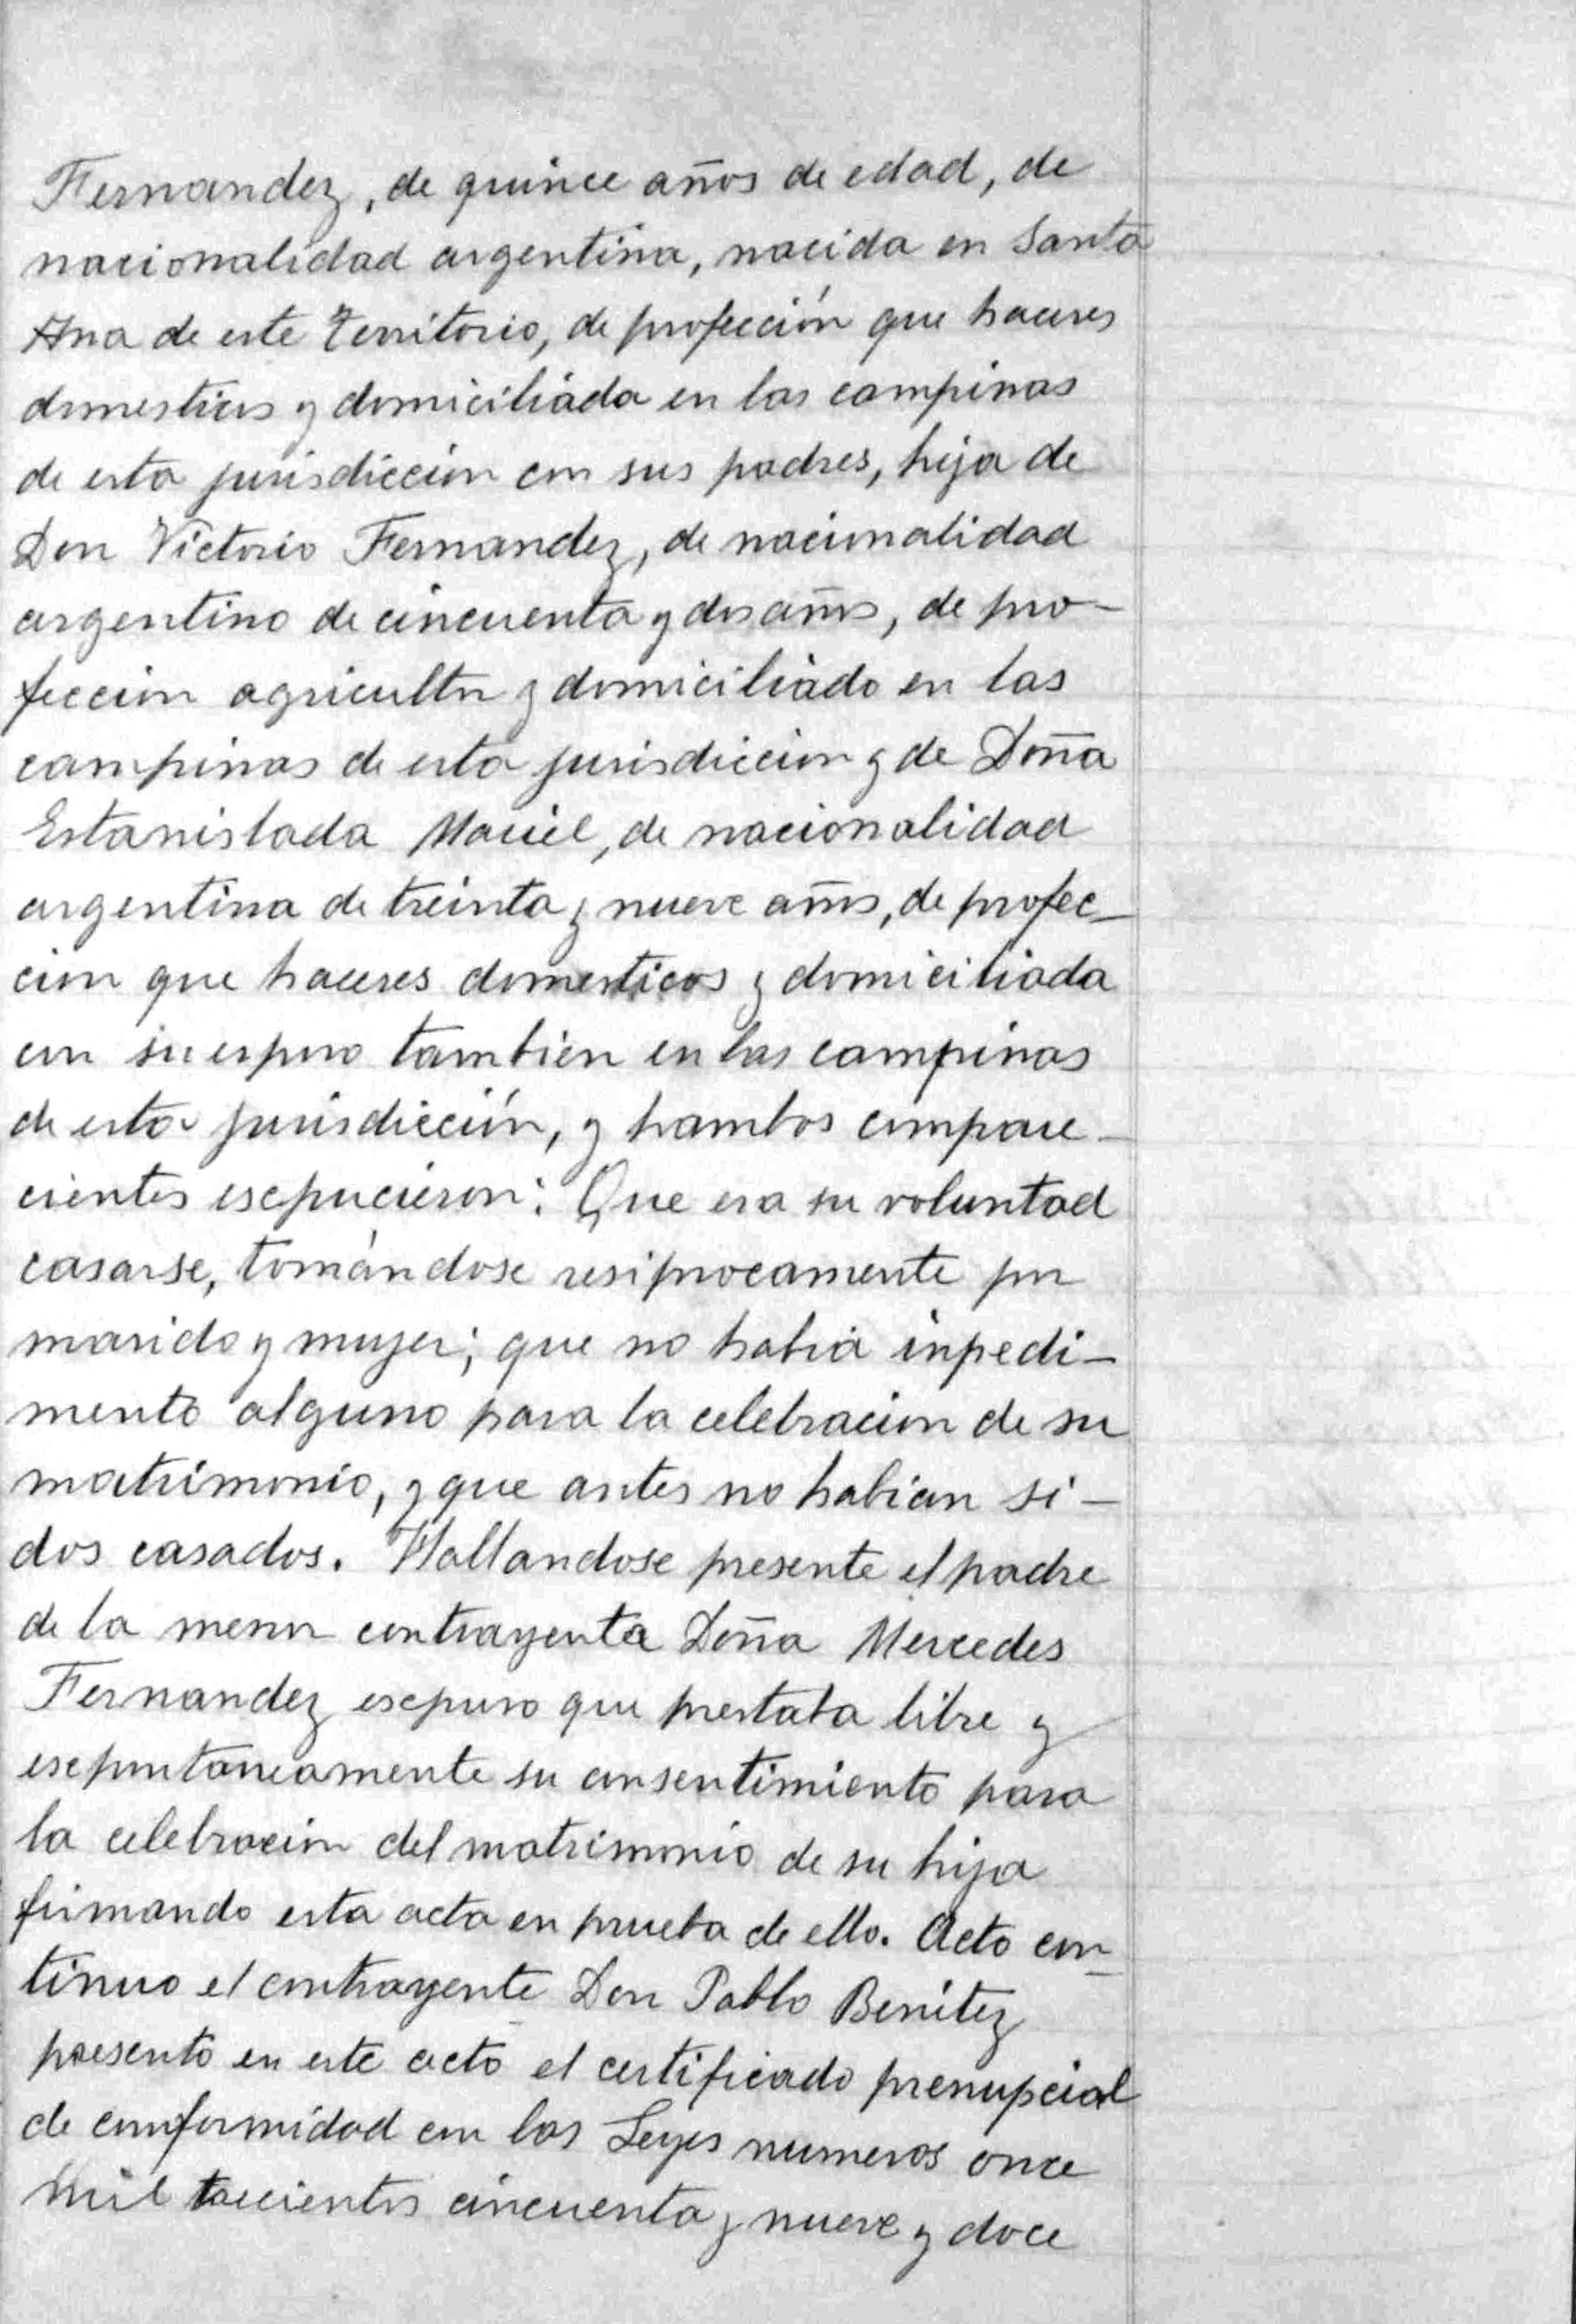 Fernandez, de quince años de edad, de
nacionalidad argentina, nacida en Santa
Ana de este Territorio, de profección que haceres
domesticos y domiciliada en las campinas
de esta jurisdiccion con sus padres, hija de
Don Victorio Fernandez, de nacionalidad
argentino de cincuenta y dos años, de pro-
feccion agricultor y domiciliado en las
campinas de esta jurisdiccion y de Doña
Estanislada Maciel, de nacionalidad
argentina de treinta y nueve años, de profec-
cion que haceres domesticos y domiciliada
con su esposo tambien en las campinas
de esta jurisdicción, y hambos compare-
cientes escpucieron: Que era su voluntad
casarse, tomándose resiprocamente por
marido y mujer; que no habia inpedi-
mento alguno para la celebracion de su
matrimonio, y que antes no habian si-
dos casados. Hallandose presente el padre
de la menor contrayenta Doña Mercedes
Fernandez escpuso que prestaba libre y
escpontaneamente su consentimiento para
la celebracion del matrimonio de su hija
firmando esta acta en prueba de ello. Acto con-
tinuo el contrayente Don Pablo Benitez
presento en este acto el certificado prenupcial
de conformidad con las Leyes numeros once
mil trecientos cincuenta y nueve y doce